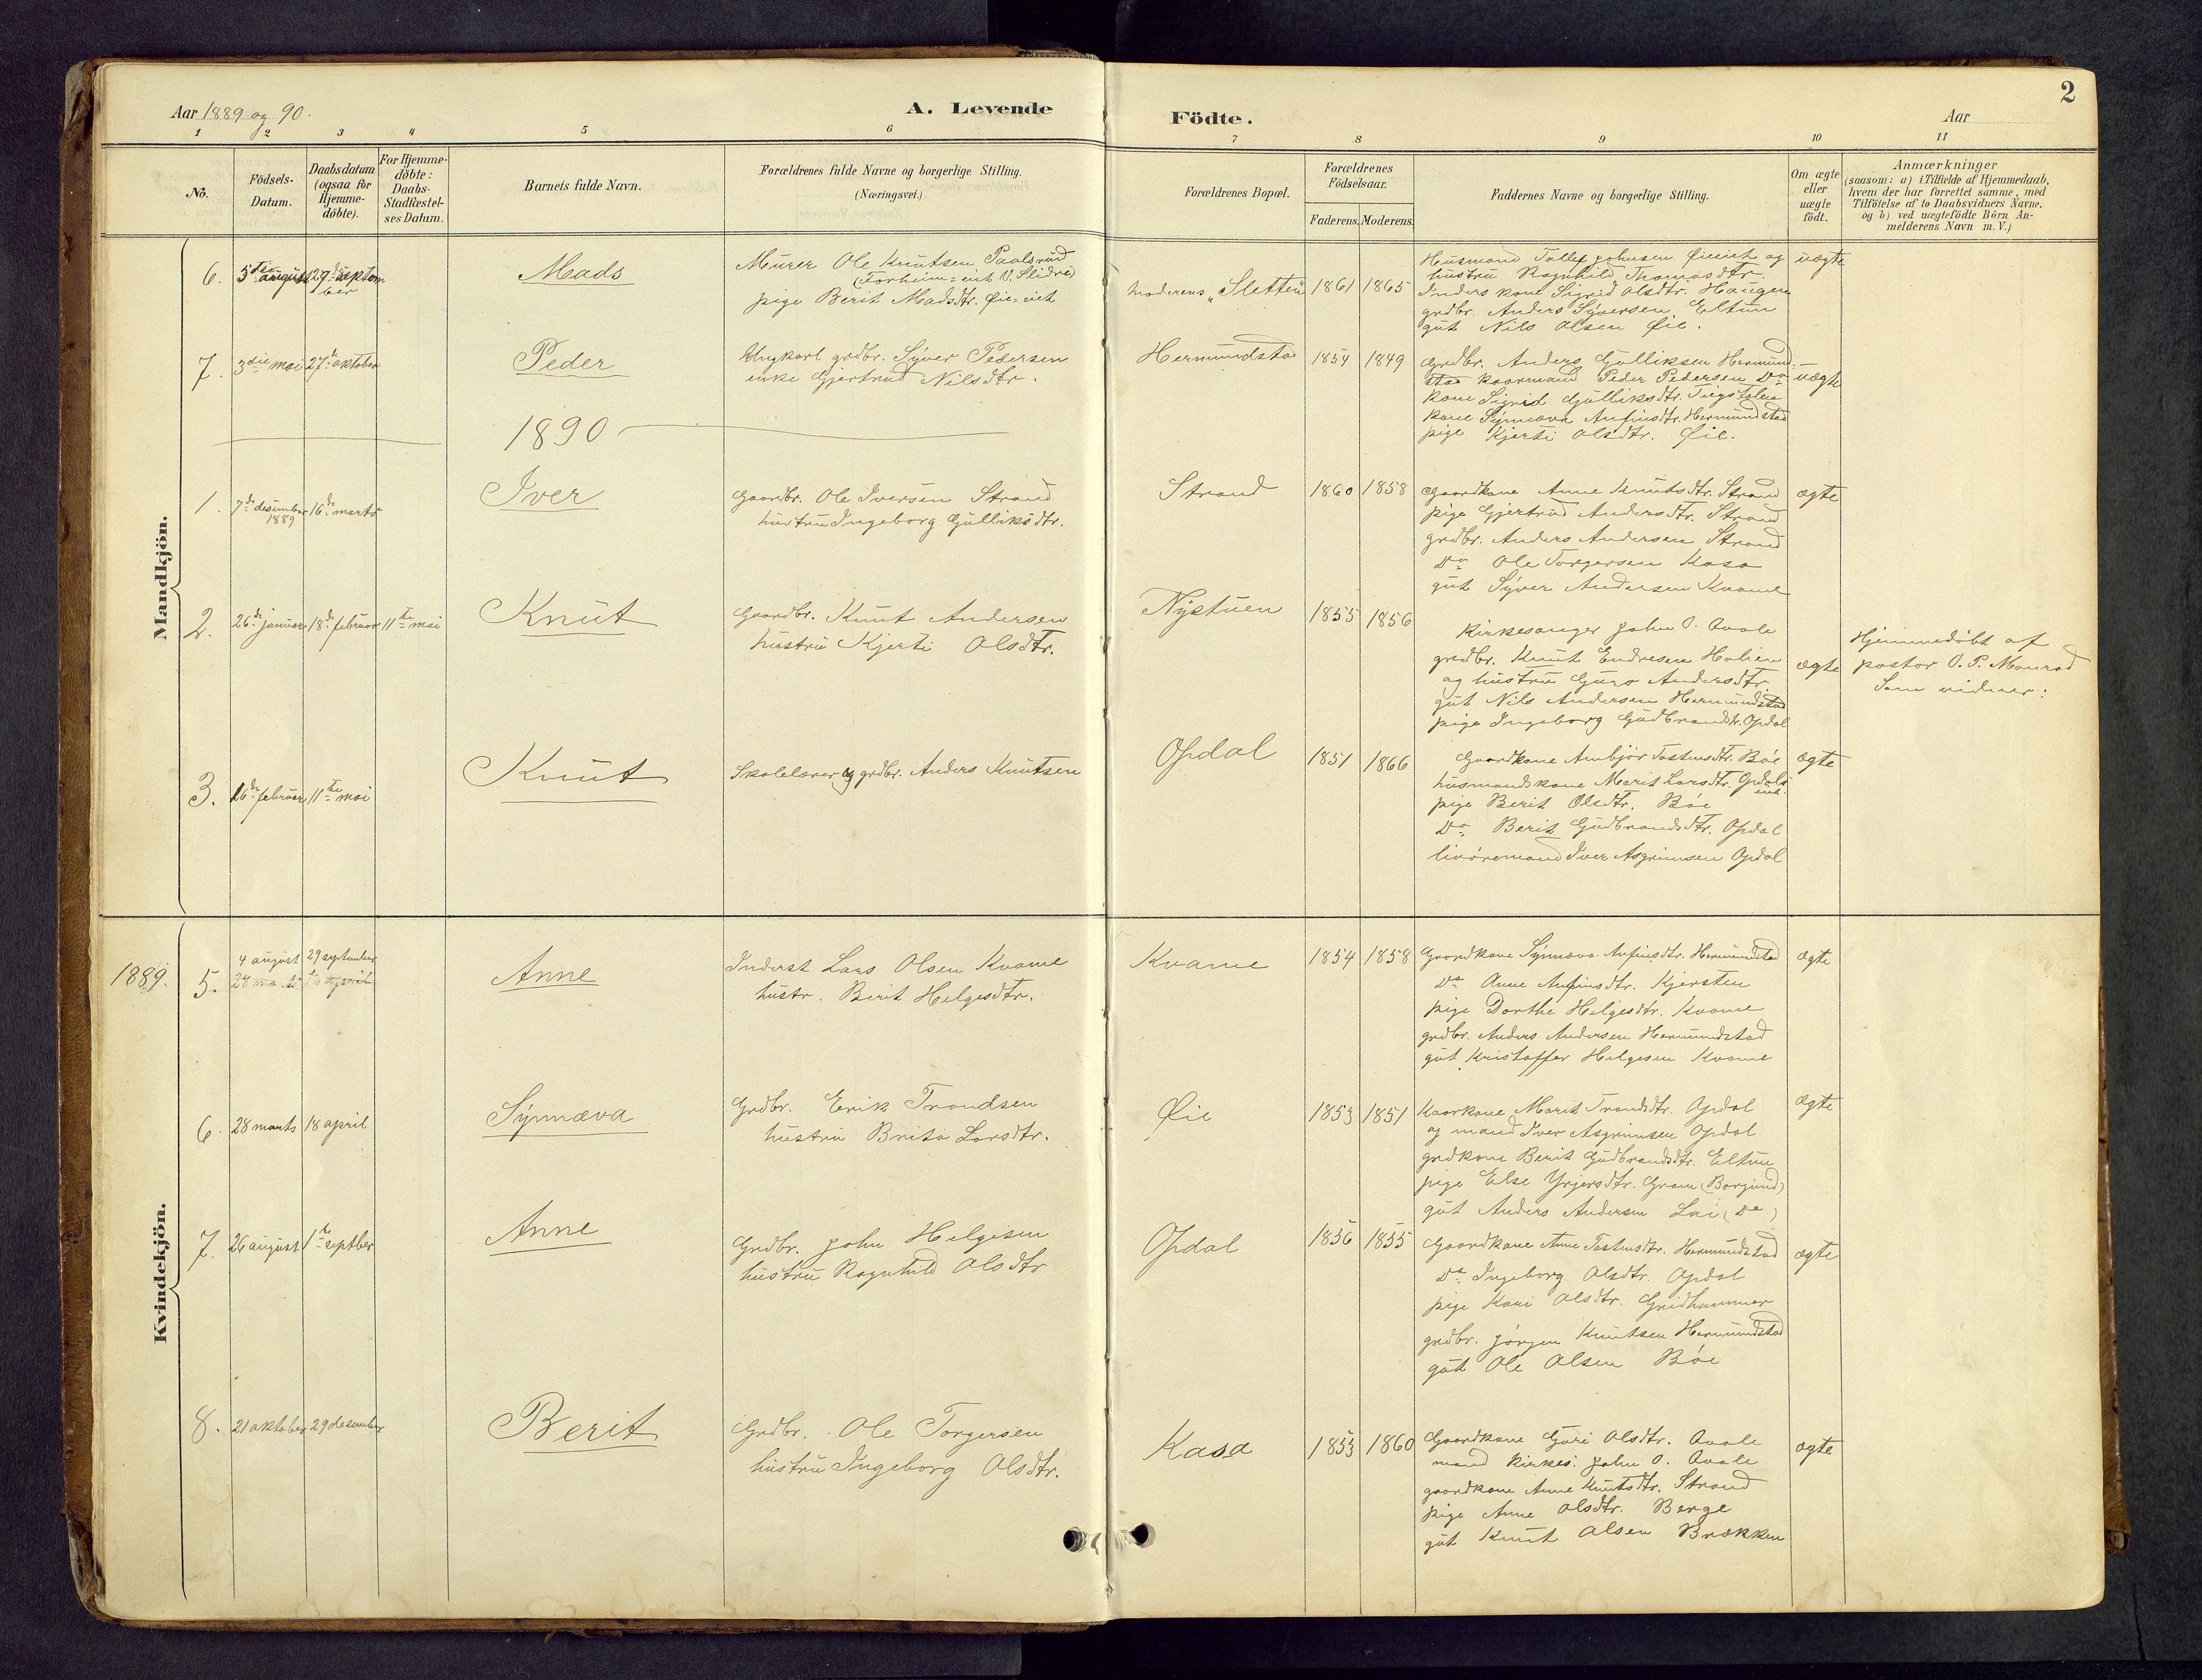 2
Aar 1889 og 90.
A. Levende
Födte.
Aar
1 2 3 4 5 6 7 8 9 10 11
No.
Födsels-
Datum.
Daabsdatum
(ogsaa for
Hjemme-
döbte).
For Hjemme-
döbte:
Daabs-
Stadfæstel-
ses Datum.
Barnets fulde Navn.
Forældrenes fulde Navne og borgerlige Stilling.
(Næringsvei.)
Forældrenes Bopæl.
Forældrenes
Födselsaar.
Faderens. Moderens.
Faddernes Navne og borgerlige Stilling.
Om ægte
eller
uægte
födt.
Anmærkninger
(saasom: a) i Tilfælde af Hjemmedaab,
hvem der har forrettet samme, med
Tilföielse af to Daabsvidners Navne,
og b) ved uægtefödte Börn An-
melderens Navn m. V.)
Mandkjön.
6.
5te august
29de septem
ber
Mads
Murer Ole Knutsen Paalsrud
(Forhim=eiet V. Slidre)
pige Berit Madsdtr. Øie=eiet
Moderens "Sletten"
1861 1865
Husmand Tollef Johnsen Øieeiet og
hustru Ragnhild Thomasdtr.
Inderskone Sigrid Olsdtr. Haugen
grdbr. Anders Syversen Eltun
gut Nils Olsen Øie.
uægte
7.
3die mai 27de oktober
Peder
Ungkarl grdbr. Syver Pedersen
enke Gjertrud Nilsdtr.
Hermundstad
1854 1849
Grdbr. Anders Gulliksen Hermund-
stad kaarmand Peder Pedersen Do
kone Sigrid Gulliksdtr.
kone Synnøva Anfinsdtr. Hermundstad
pige Kjersti Olsdtr. Øie.
uægte
1890
1.
7de desember
1889
16de marts
Iver
Gaardbr. Ole Iversen Strand
hustru Ingeborg Gulliksdtr.
Strand
1860 1858
Gaardkone Anne Knutsdtr. Strand
pige Gjertrud Andersdtr. Strand
grdbr. Anders Andersen Strand
Do Ole Torgersen Kasa
gut Syver Andersen Kvame
ægte
2.
26de januar 18de februar 11te mai
Knut
Gaardbr. Knut Andersen
hustru Kjersti Olsdtr.
Nystuen
1855 1856
Kirkesanger John O. Qvale
grdbr. Knut Endresen Holien
og hustru Guro Andersdtr.
gut Nils Andersen Hermundstad
pige Ingeborg Gudbrandsdtr. Opdal
ægte
Hjemmedöbt af
pastor O. P. Monrad
Som vidner:
3.
16de februar 11te mai
Knut
Skolelærer og grdbr. Anders Knutsen
Opdal
1851 1866
Gaardkone Ambjör Tostensdtr. Böe
husmandskone Marit Larsdtr. Opdals
eiet.
pige Berit Olsdtr. Böe
Do Berit Gudbrandsdtr. Opdal
livöremand Iver Asgrimsen Opdal
ægte
Kvindekjön.
1889.
5.
4 august 29 september
Anne
Inderst Lars Olsen Kvame
hustr. Berit Helgesdtr.
Kvame
1854 1858
Gaardkone Synnøva Anfinsdtr. Hermundstad
Do Anne Anfinsdtr. Kjersten
pige Dorthe Helgesdtr. Kvame
grdbr. Anders Andersen Hermundstad
gut Kristoffer Helgesen Kvame
ægte
6.
28 marts 18 april
Synnæva
Grdbr. Erik Trondsen
hustru Brita Larsdtr.
Øie
1853 1851
Kaarkone Marit Trondsdtr. Opdal
og mand Iver Asgrimsen Opdal
grdkone Berit Gudbrandsdtr. Eltun
pige Else Yrjersdtr. Gram (Borgund)
gut Anders Andersen Lai (Do)
ægte
7.
26 august 1ste septber
Anne
Grdbr. John Helgesen
hustru Ragnhild Olsdtr
Opdal
1856 1855
Gaardkone Anne Tostensdtr. Hermundstad
Do Ingeborg Olsdtr. Opdal
pige Kari Olsdtr. Gridhammer
grdbr. Jörgen Knutsen Hermundstad
gut Ole Olsen Böe
ægte
8.
21 oktober 29 desember
Berit
Grdbr. Ole Torgersen
hustru Ingeborg Olsdtr.
Kasa
1853 1860
Gaardkone Guri Olsdtr. Qvale
mand Kirkes. John O. Qvale
gaardkone Anne Knutsdtr. Strand
pige Anne Olsdtr. Berge
gut Knut Olsen Brækken
ægte